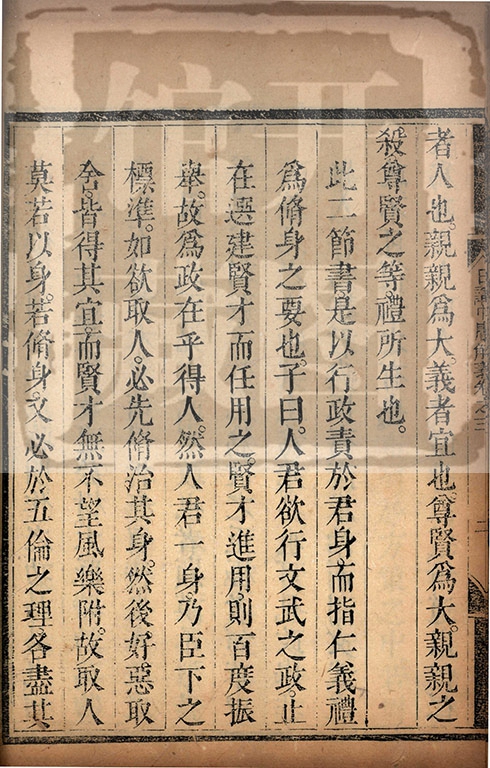 者人也。親親爲大。義者宜也。尊賢爲大。親親之
殺。尊賢之等。禮所生也。
此二節書是以行政責於君身。而指仁義禮
爲脩身之要也。子曰。人君欲行文武之政。止
在選建賢才而任用之。賢才進用。則百度振
舉。故爲政在乎得人。然人君一身。乃臣下之
標準。如欲取人。必先脩治其身。然後好惡取
舍。皆得其宜。而賢才無不望風樂附。故取人
莫若以身。若脩身。又必於五倫之理。各盡其
日講
解義卷之三
二